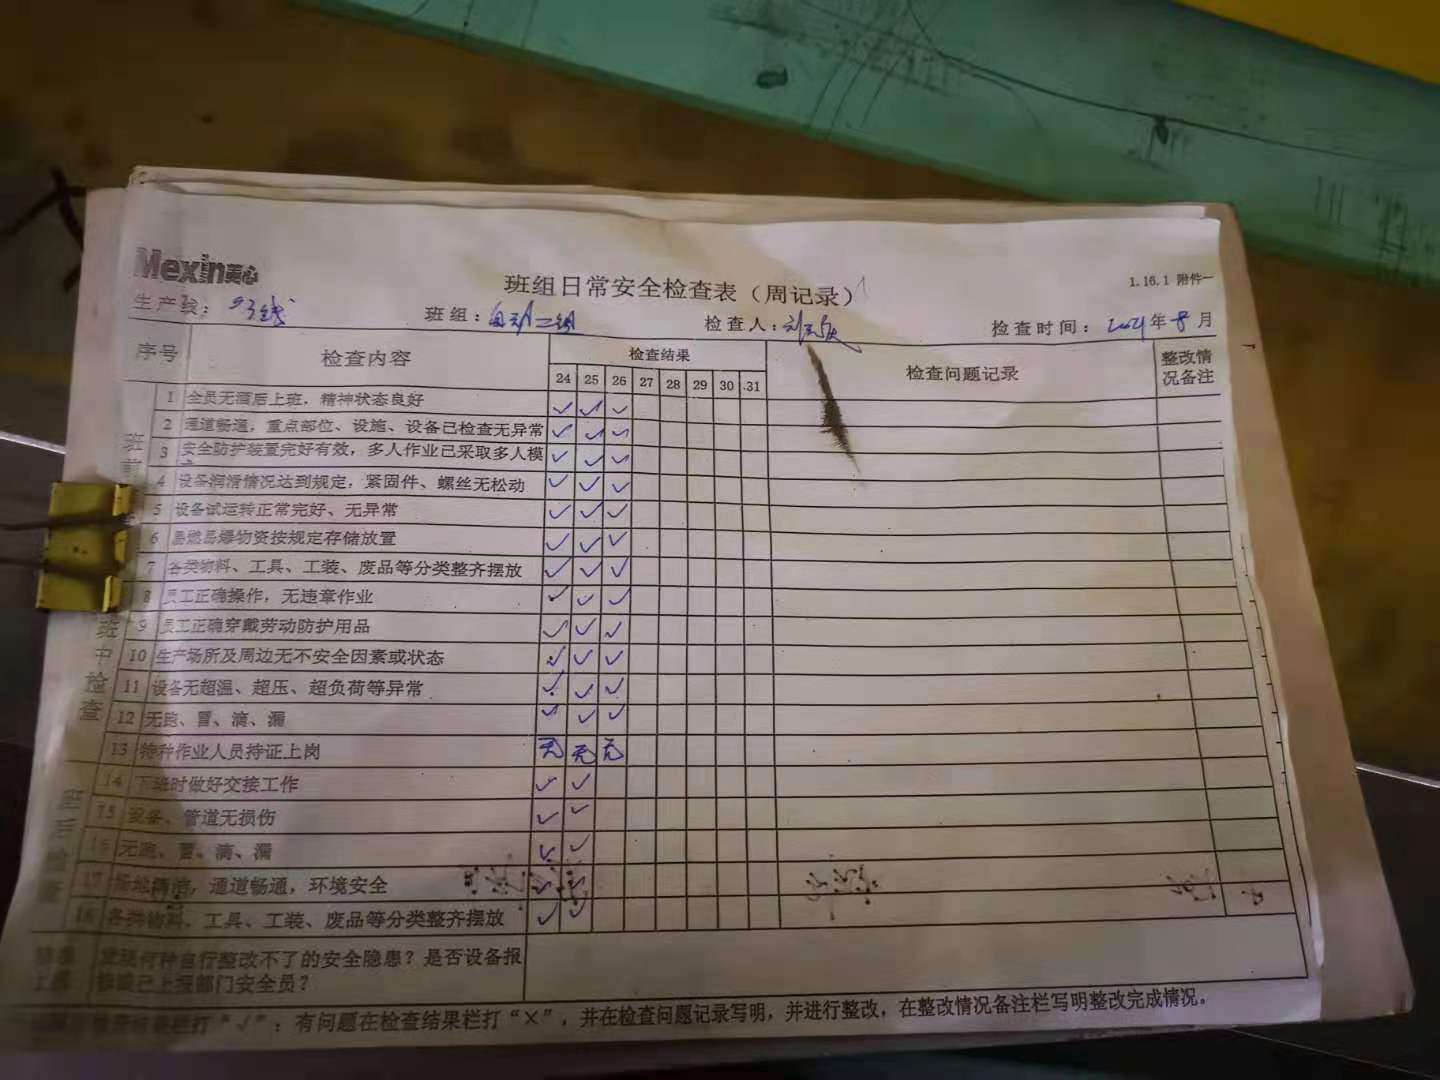 Mexin美心
1.16.1 附件一
班组日常安全检查表（周记录）
生产线：
班组：自动二组
检查人：
检查时间：2021年8月
序号 检查内容 检查结果 检查问题记录 整改情况备注
24 25 26 27 28 29 30 31
班前
1 全员无酒后上班，精神状态良好 ✓ ✓ ✓
2 通道畅通，重点部位、设施、设备已检查无异常 ✓ ✓ ✓
3 安全防护装置完好有效，多人作业已采取多人模 ✓ ✓ ✓
4 设备润滑情况达到规定，紧固件、螺丝无松动 ✓ ✓ ✓
5 设备试运转正常完好、无异常 ✓ ✓ ✓
6 易燃易爆物资按规定存储放置 ✓ ✓ ✓
7 各类物料、工具、工装、废品等分类整齐摆放 ✓ ✓ ✓
班中检查
8 员工正确操作，无违章作业 ✓ ✓ ✓
9 员工正确穿戴劳动防护用品 ✓ ✓ ✓
10 生产场所及周边无不安全因素或状态 ✓ ✓ ✓
11 设备无超温、超压、超负荷等异常 ✓ ✓ ✓
12 无跑、冒、滴、漏 ✓ ✓ ✓
13 特种作业人员持证上岗 无 无 无
班后检查
14 下班时做好交接工作 ✓ ✓
15 设备、管道无损伤 ✓ ✓
16 无跑、冒、滴、漏 ✓ ✓
17 场地清洁，通道畅通，环境安全 ✓ ✓
18 各类物料、工具、工装、废品等分类整齐摆放 ✓ ✓
发现何种自行整改不了的安全隐患？是否设备报
修或已上报部门安全员？
打“√”；有问题在检查结果栏打“×”，并在检查问题记录写明，并进行整改，在整改情况备注栏写明整改完成情况。